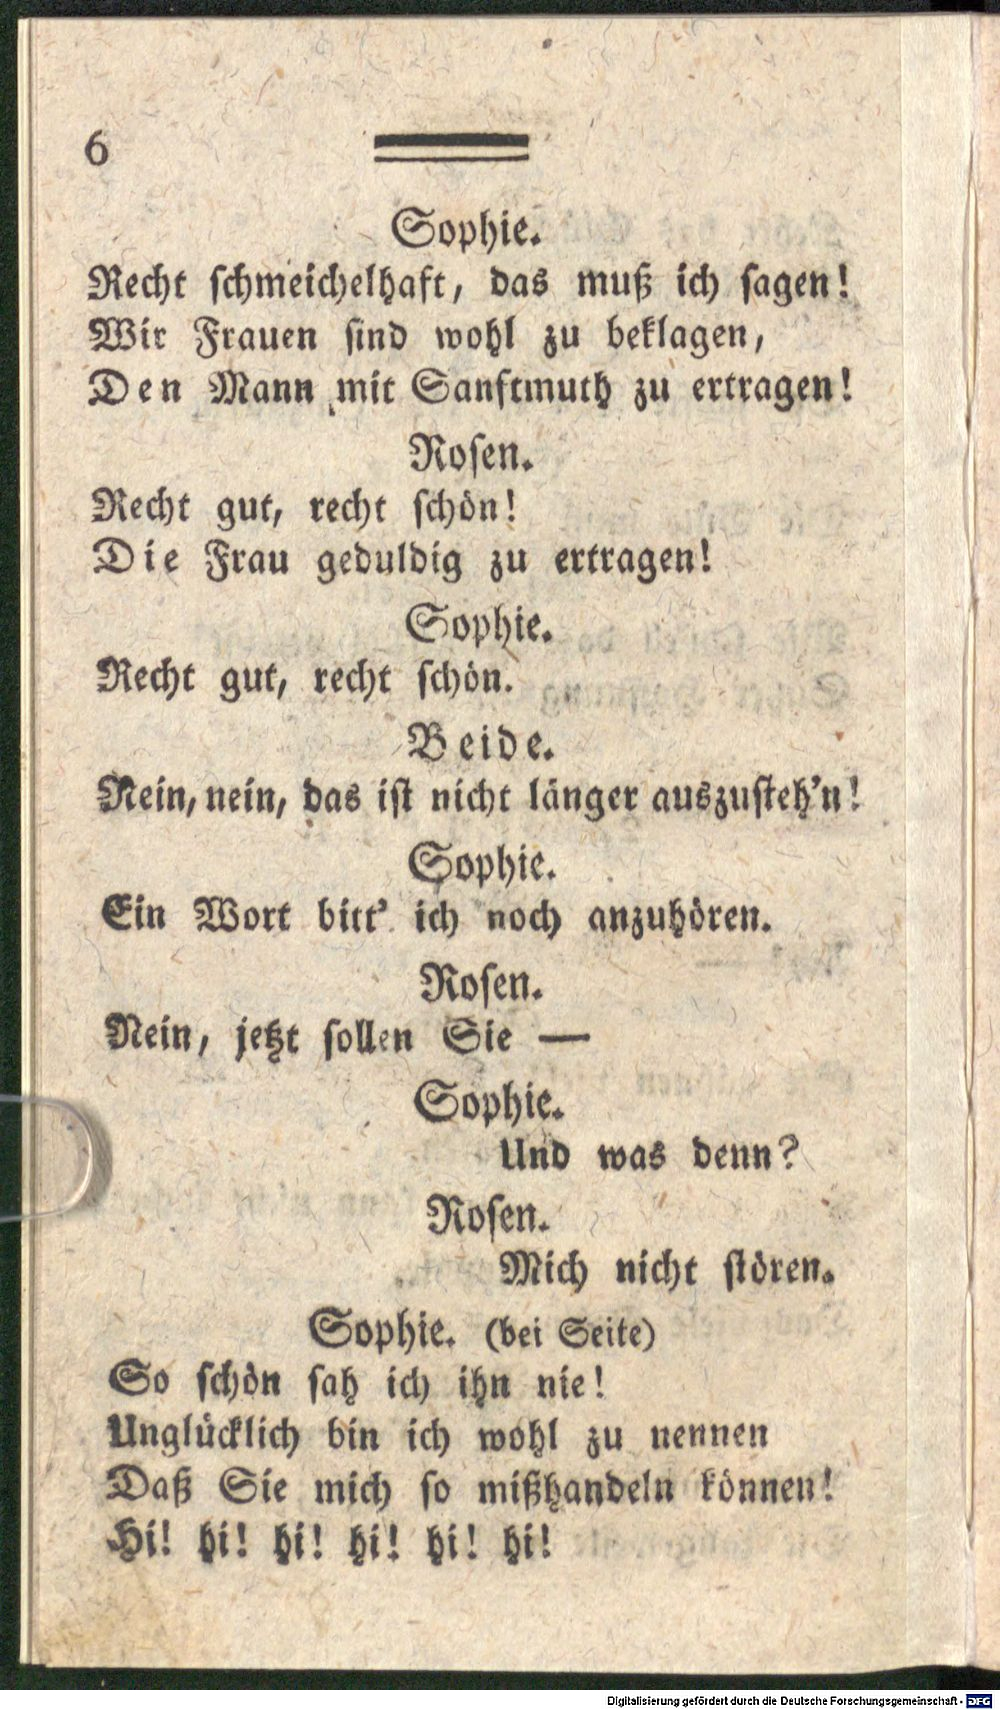 6
Sophie.
Recht schmeichelhaft, das muß ich sagen!
Wir Frauen sind wohl zu beklagen,
Den Mann mit Sanftmuth zu ertragen!
Rosen.
Recht gut, recht schön!
Die Frau geduldig zu ertragen!
Sophie.
Recht gut, recht schön.
Beide.
Nein, nein, das ist nicht länger auszusteh'n!
Sophie.
Ein Wort bitt' ich noch anzuhören.
Rosen.
Nein, jetzt sollen Sie —
Sophie.
Und was denn?
Rosen.
Mich nicht stören.
Sophie. (bei Seite)
So schön sah ich ihn nie!
Unglücklich bin ich wohl zu nennen
Daß Sie mich so mißhandeln können!
Hi! hi! hi! hi! hi! hi!
Digitalisierung gefördert durch die Deutsche Forschungsgemeinschaft - DFG